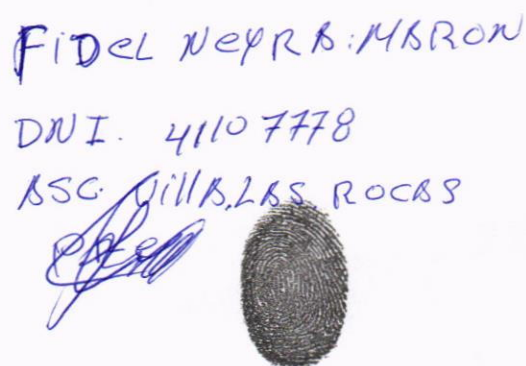 FiDeL NeyRA:MARON
DNI. 41107778
ASC. VillA.LAS.ROCAS